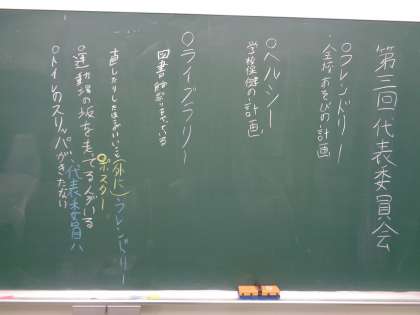 第三回 代表委員会
○フレンドリー
全校あそびの計画
○ヘルシー
学校保健の計画
○ライブラリー
図書
直したりしたほうがいいところ(外に)フレンドリー
○ポスター
○運動場の坂を走ってる人がいる
○トイレのスリッパがきたない 代表委員